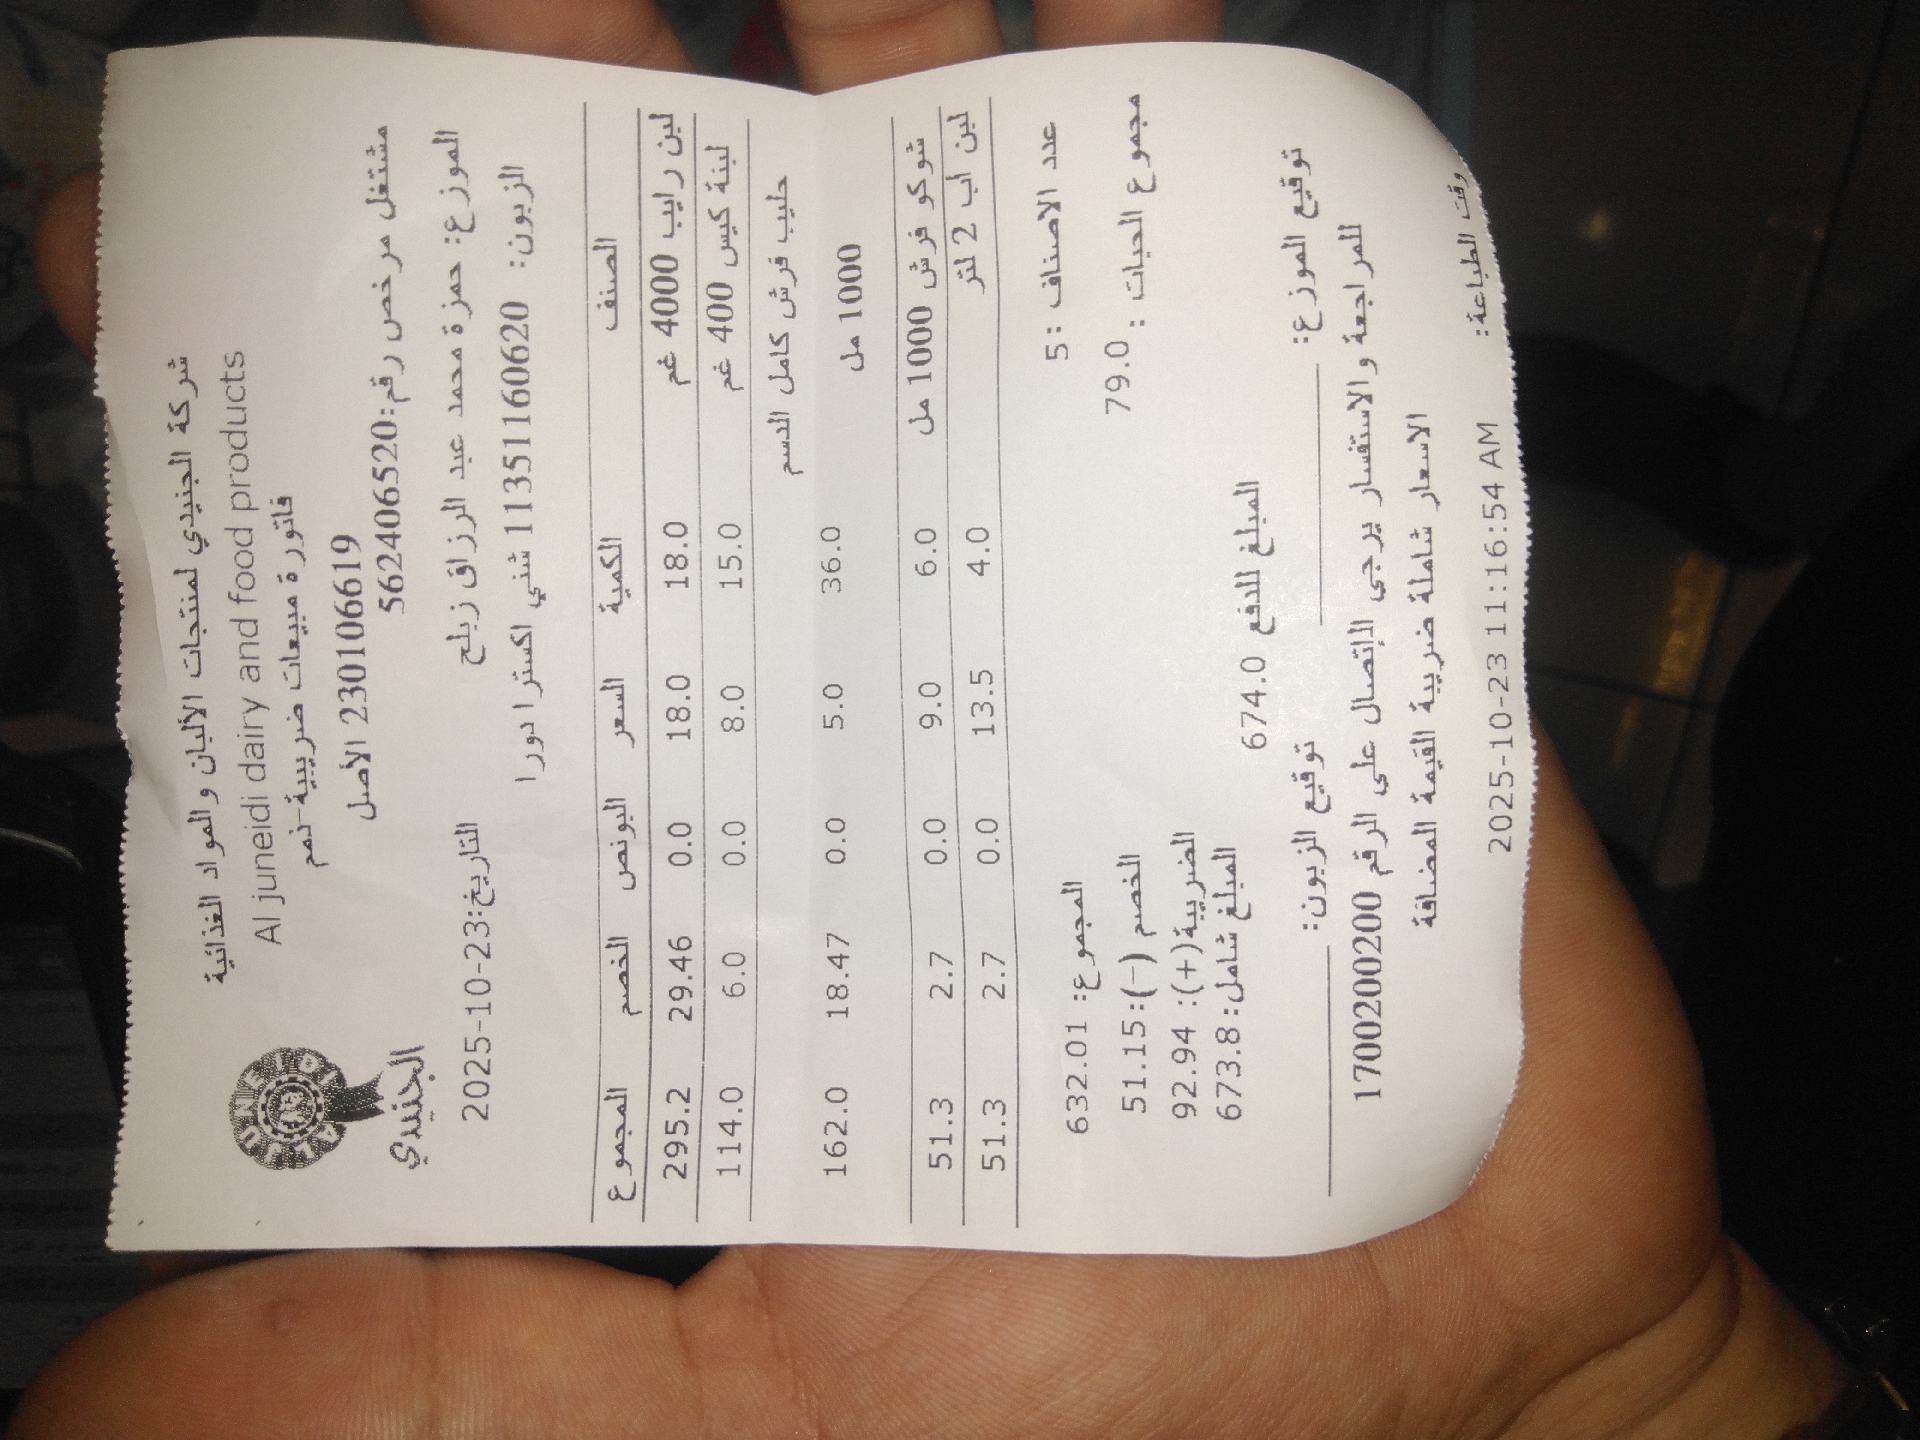 شركة الجنيدي لمنتجات الألبان والمواد الغذائية
Al juneidi dairy and food products
فاتورة مبيعات ضريبية-ذمم
230106619 الأصل
مشتغل مرخص رقم:562406520
JUNEIDI
الجنيدي
الموزع: حمزة محمد عبد الرزاق زبلح
التاريخ:23-10-2025
الزبون: 11351160620 شني اكسترا دورا
الصنف الكمية السعر البونص الخصم المجموع
لبن رايب 4000 غم 18.0 18.0 0.0 29.46 295.2
لبنة كيس 400 غم 15.0 8.0 0.0 6.0 114.0
حليب فرش كامل الدسم
1000 مل 36.0 5.0 0.0 18.47 162.0
شوكو فرش 1000 مل 6.0 9.0 0.0 2.7 51.3
لبن اب 2 لتر 4.0 13.5 0.0 2.7 51.3
عدد الاصناف :5
المجموع: 632.01
مجموع الحبات : 79.0
الخصم (-):51.15
الضريبة(+): 92.94
المبلغ شامل: 673.8
المبلغ للدفع 674.0
توقيع الموزع: توقيع الزبون:
للمراجعة والاستفسار يرجى الإتصال على الرقم 1700200200
الاسعار شاملة ضريبة القيمة المضافة
وقت الطباعة: 2025-10-23 11:16:54 AM